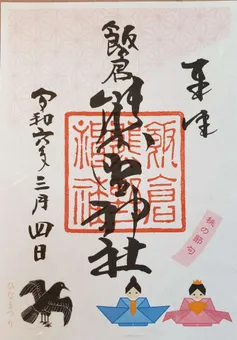 奉拝
桃の節句
飯倉
熊野神社
飯倉
熊野
神社
令和六年三月四日